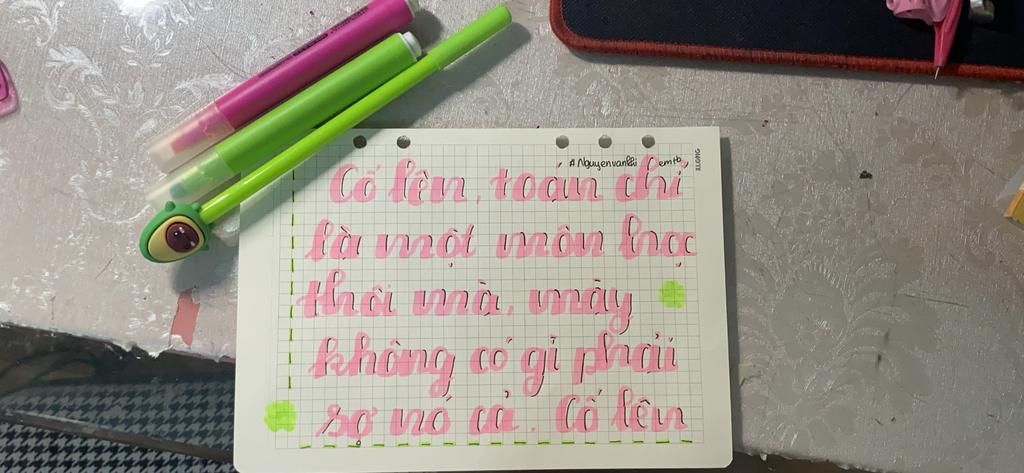 #Nguyenvankhi emtb
XLONG
Cố lên, toán chỉ
là một môn học
thôi mà, mày
không có gì phải
sợ nó cả. Cố lên